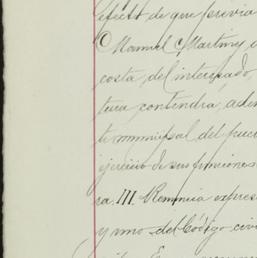 efecto de que previa
Manuel Martinez
costa del interesado,
tura contendra, adem
te municipal del
ejercicio de sus funciones
ra. III. Renuncia expres
y uno del Código civi